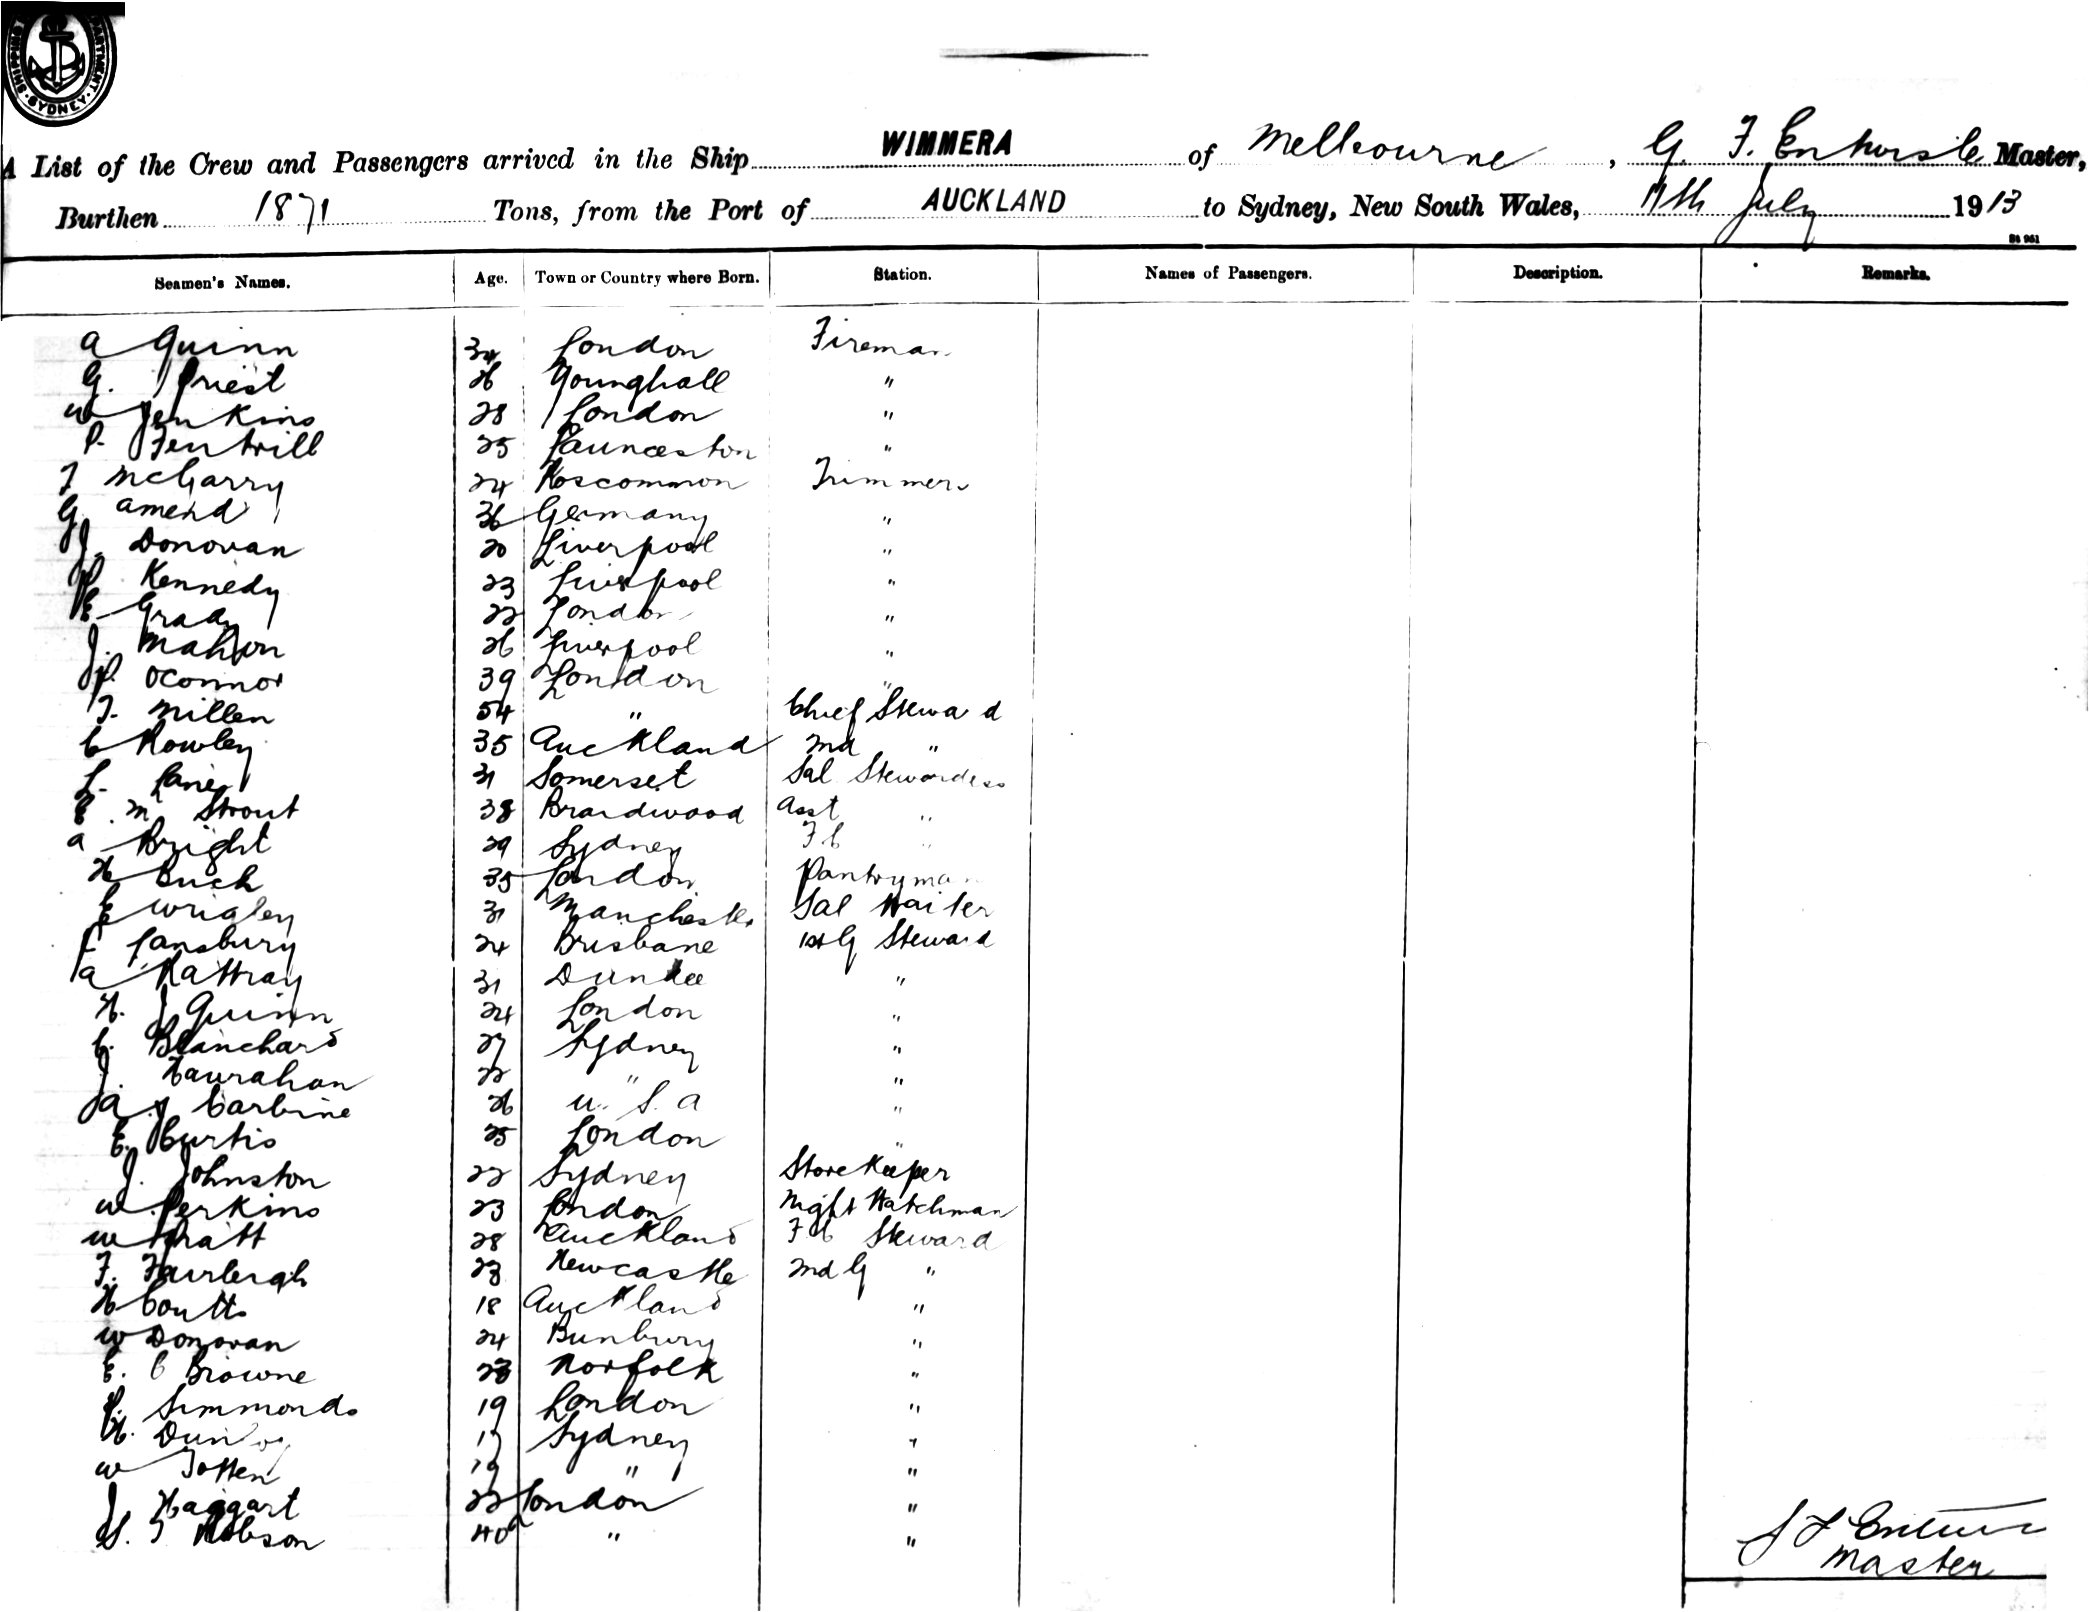 SHIPPING DEPARTMENT · SYDNEY ·
A List of the Crew and Passengers arrived in the Ship WIMMERA of Melbourne, G. F. Master,
Burthen 1871 Tons, from the Port of AUCKLAND to Sydney, New South Wales, 11th July 1913
St 961
Seamen's Names. Age. Town or Country where Born. Station. Names of Passengers. Description. Remarks.
a Quinn 34 London Fireman
G. Priest 26 Younghall "
W Jenkins 28 London "
P. Fentrill 25 Launceston "
F McGarry 24 Roscommon Trimmer
G amend 36 Germany "
J. Donovan 20 Liverpool "
P Kennedy 23 Liverpool "
E Grady 22 London "
J. Mahon 26 Liverpool "
P. OConnor 39 London "
T. Millen 54 " Chief Steward
C Rowley 35 Auckland 2nd "
L. Lane 31 Somerset Sal Stewardess
E. M Strout 38 Braidwood Asst "
a Bright 29 Sydney F C "
H Buch 35 London Pantryman
E Wrigley 31 Manchester Sal Waiter
F Lansbury 24 Brisbane 1st G Steward
a Rattray 31 Dundee "
H. J Quinn 24 London "
C. Blanchard 27 Sydney "
J. Haurahan 22 " "
a J Carbine 26 U. S. a "
E. Curtis 25 London "
J. Johnston 22 Sydney Storekeeper
W. Perkins 23 London Night Watchman
W Pratt 28 Auckland F C Steward
F. Fairleigh 23 Newcastle 2nd G "
H Coutts 18 Auckland "
W Donovan 24 Bunbury "
E. C Browne 23 Norfolk "
P. Simmonds 19 London "
H. 17 Sydney "
W Totten 19 " "
J Haggart 22 London "
S. T Robson 40 " "
Master